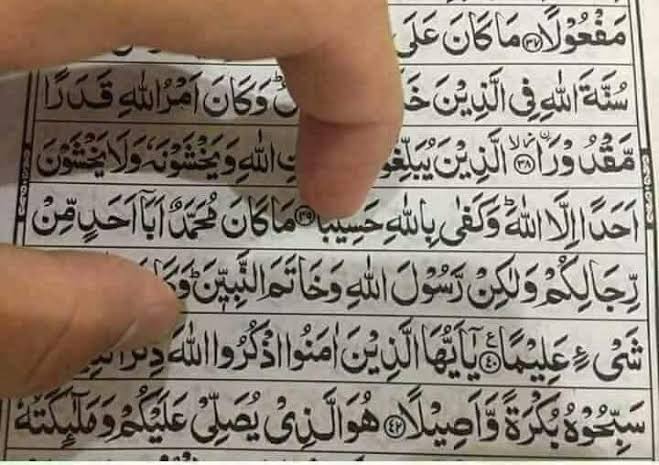 مَفْعُوْلًا ﴿٣٧﴾ مَا كَانَ عَلَى
سُنَّةَ اللّٰهِ فِی الَّذِیْنَ وَكَانَ اَمْرُ اللّٰهِ قَدَرًا
مَّقْدُوْرَا ﴿٣٨﴾ الَّذِیْنَ اللّٰهِ وَیَخْشَوْنَهٗ وَلَا یَخْشَوْنَ
اَحَدًا اِلَّا اللّٰهَ ؕ وَكَفٰی بِاللّٰهِ حَسِیْبًا ﴿٣٩﴾ مَا كَانَ مُحَمَّدٌ اَبَاۤ اَحَدٍ مِّنْ
رِّجَالِكُمْ وَلٰكِنْ رَّسُوْلَ اللّٰهِ وَخَاتَمَ النَّبِیّٖنَ ؕ
شَیْءٍ عَلِیْمًا ﴿٤٠﴾ یٰۤاَیُّهَا الَّذِیْنَ اٰمَنُوا اذْكُرُوا اللّٰهَ
سَبِّحُوْهُ بُكْرَةً وَّاَصِیْلًا ﴿٤٢﴾ هُوَ الَّذِیْ یُصَلِّیْ عَلَیْكُمْ وَمَلٰٓئِكَتُهٗ